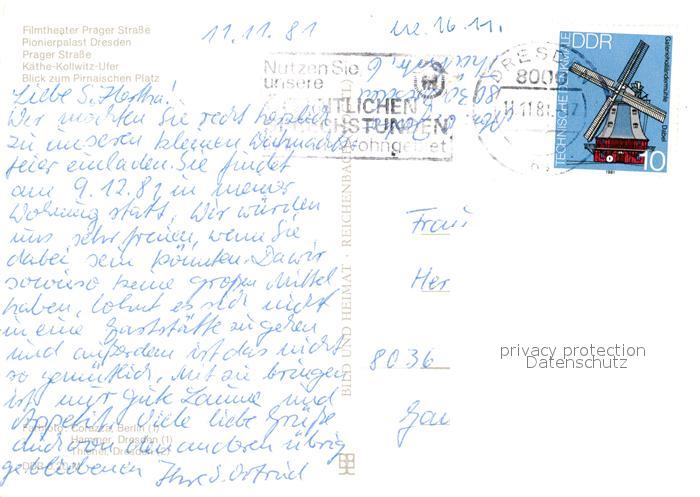 Filmtheater Prager Straße
Pionierpalast Dresden
Prager Straße
Käthe-Kollwitz-Ufer
Blick zum Pirnaischen Platz
11.11.81
Liebe S. Hertha!
Wir möchten Sie recht herzlich
zu unserer kleinen Weihnachts
feier einladen. Sie findet
am 9.12.81 in meiner
Wohnung statt. Wir würden
uns sehr freuen, wenn Sie
dabei sein könnten. Da wir
sowieso keine großen Mittel
haben, lohnt es sich nicht
in eine Gaststätte zu gehen
und außerdem ist das nicht
so gemütlich. Mit zu bringen
ist nur gute Laune und
Appetit. Viele liebe Grüße
auch von den anderen übrig
gebliebenen Ihre S. Ortrud
Berlin (1)
Hammer, Dresden (1)
Thieme, Dresden (2)
Nutzen Sie
unsere
ÄRZTLICHEN
SPRECHSTUNDEN
Wohngebiet
DRESDEN
8006
11.11.81
DDR
TECHNISCHE DENKMALE
Galerieholländermühle
Dabel
10
1981
BILD UND HEIMAT · REICHENBACH
Frau
Her
8036
privacy protection
Datenschutz